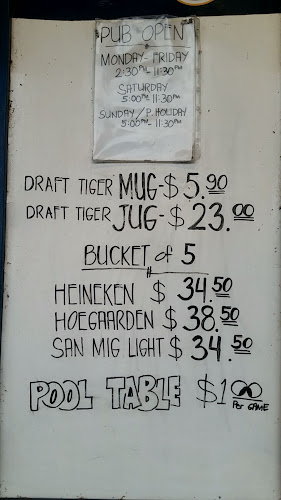 PUB OPEN
MONDAY-FRIDAY
2:30PM-11:30PM
SATURDAY
5:00PM-11:30PM
SUNDAY/P.HOLIDAY
5:00PM-11:30PM
DRAFT TIGER MUG-$5.90
DRAFT TIGER JUG-$23.00
BUCKET of 5
HEINEKEN $34.50
HOEGAARDEN $38.50
SAN MIG LIGHT $34.50
POOL TABLE $1.00
Per GAME